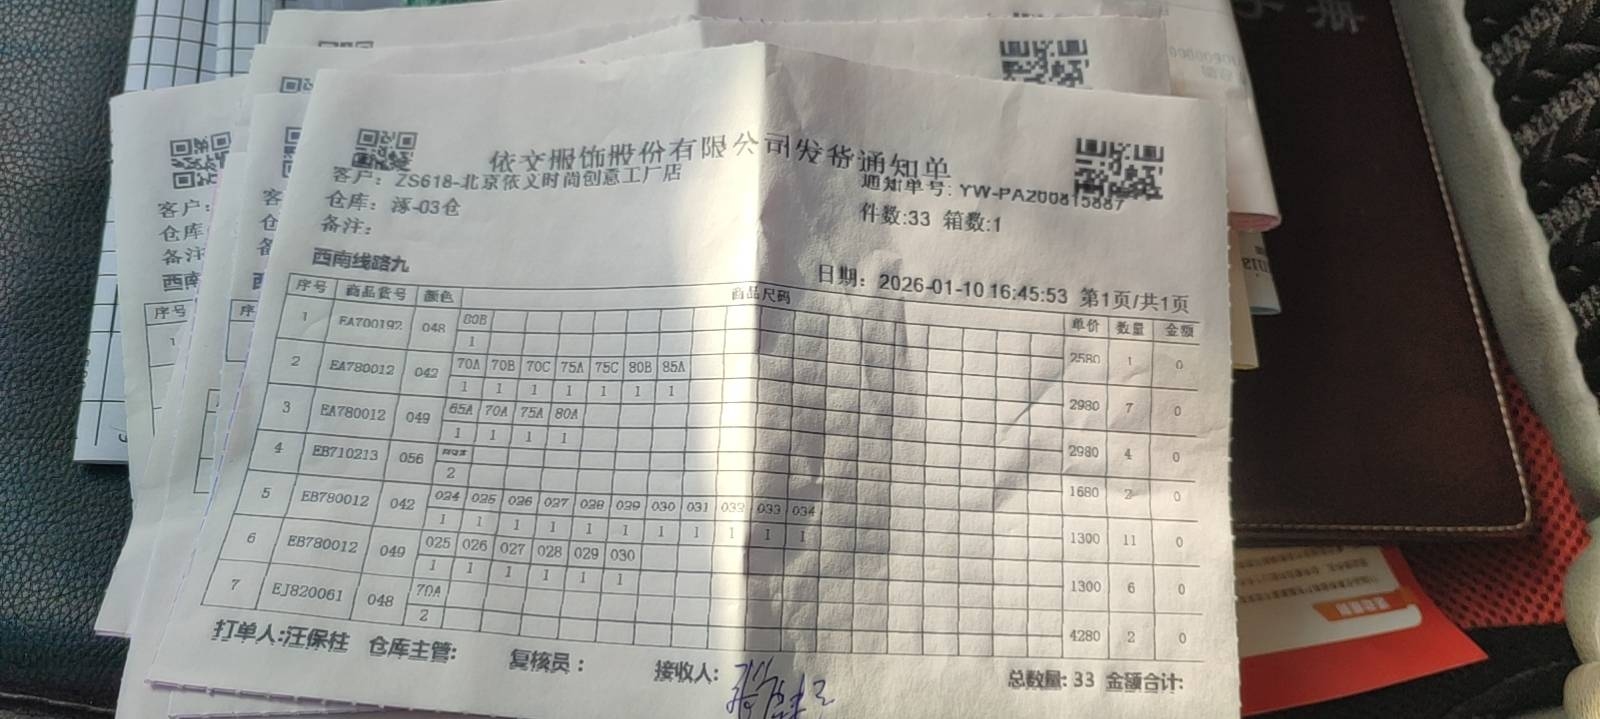 依文服饰股份有限公司发货通知单
客户：ZS618-北京依文时尚创意工厂店
通知单号: YW-PA200815887
仓库：涿-03仓
件数:33 箱数:1
备注：
西南线路九
日期：2026-01-10 16:45:53 第1页/共1页
序号 商品货号 颜色 商品尺码 单价 数量 金额
1 EA700192 048 80B 2580 1 0
1
2 EA780012 042 70A 70B 70C 75A 75C 80B 85A 2980 7 0
1 1 1 1 1 1 1
3 EA780012 049 65A 70A 75A 80A 2980 4 0
1 1 1 1
4 EB710213 056 1680 2 0
2
5 EB780012 042 024 025 026 027 028 029 030 031 032 033 034 1300 11 0
1 1 1 1 1 1 1 1 1 1 1
6 EB780012 049 025 026 027 028 029 030 1300 6 0
1 1 1 1 1 1
7 EJ820061 048 70A 4280 2 0
2
打单人:汪保柱 仓库主管: 复核员： 接收人: 总数量: 33 金额合计:
客户:
仓库
备注
西南
序号
1
客
仓
备
西
序